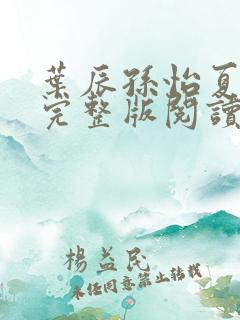 葉辰孫怡夏
完整版閱讀
楊益民
未經同意禁止轉載